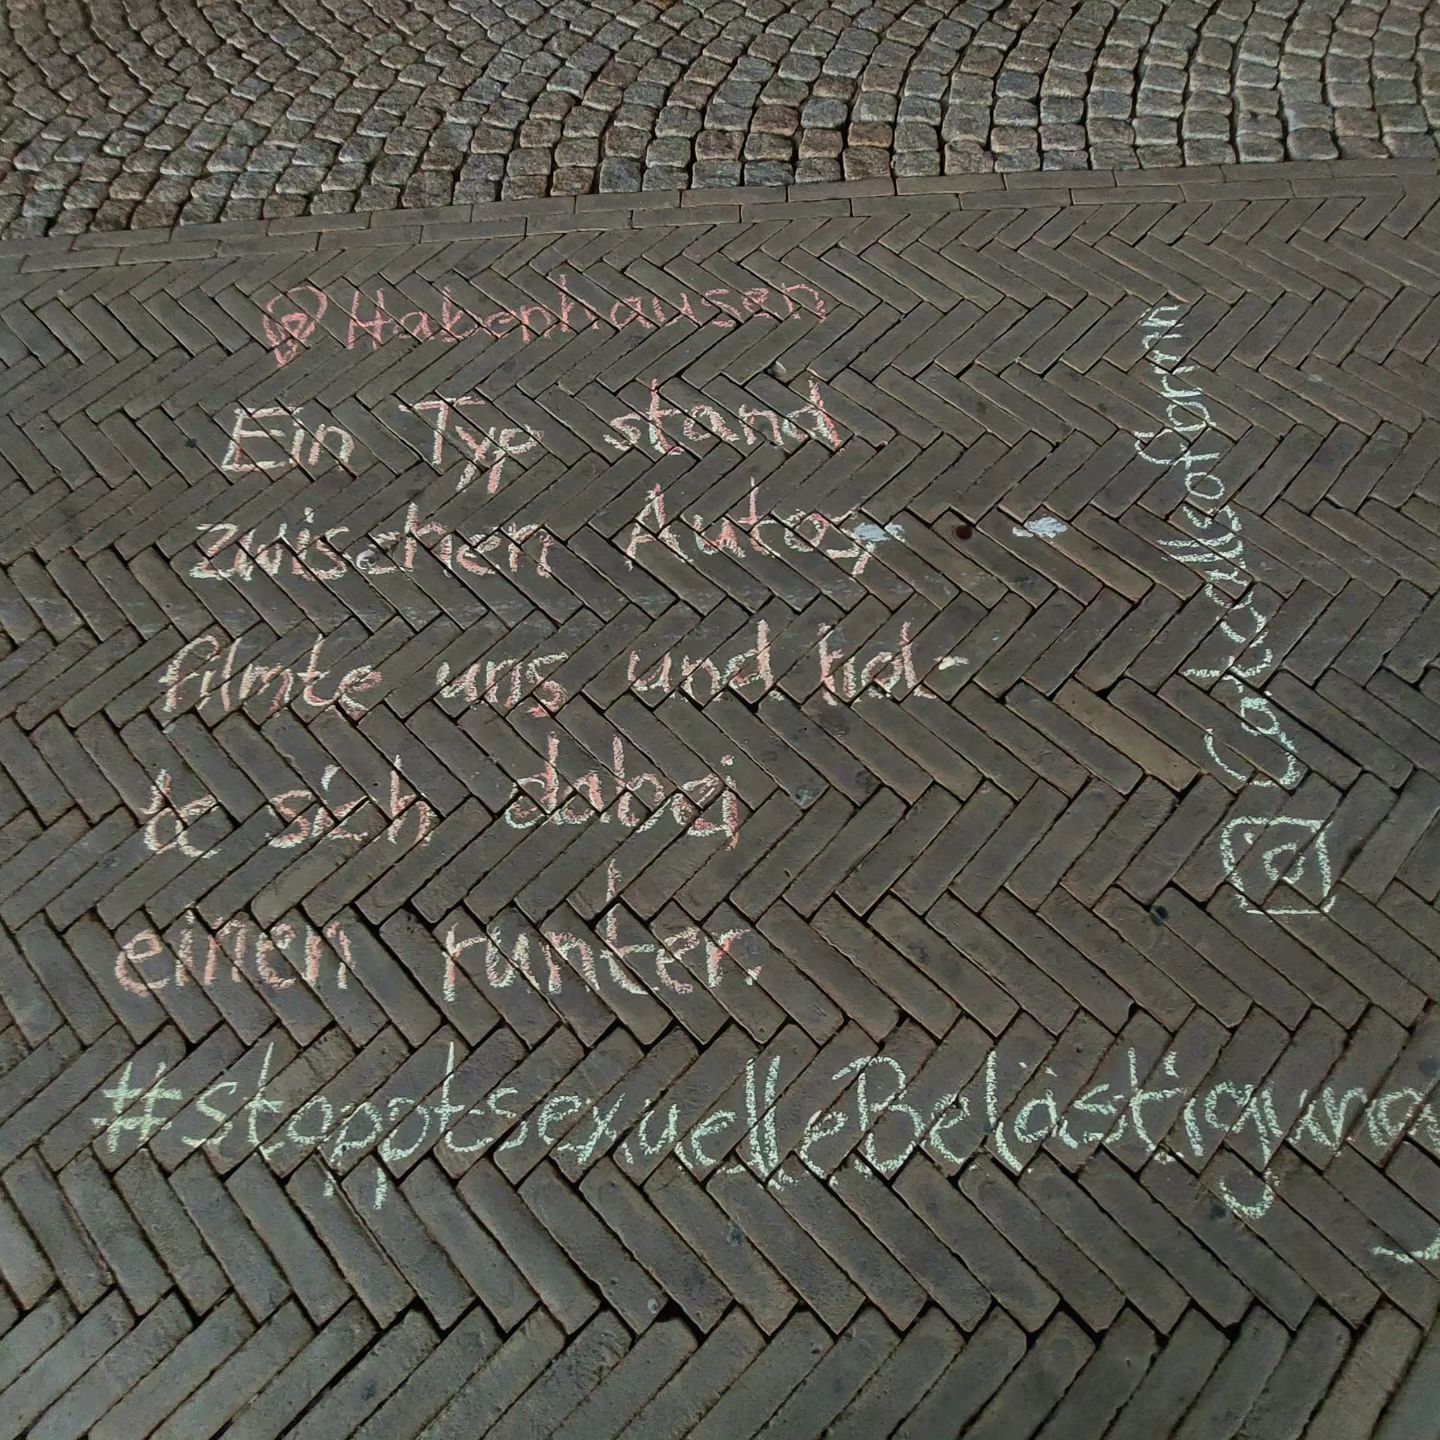 Habenhausen
Ein Typ stand
zwischen Autos,
filmte uns und hol-
te sich dabei
einen runter.
#StopptsexuelleBelästigung
@Catcallsofbrmn